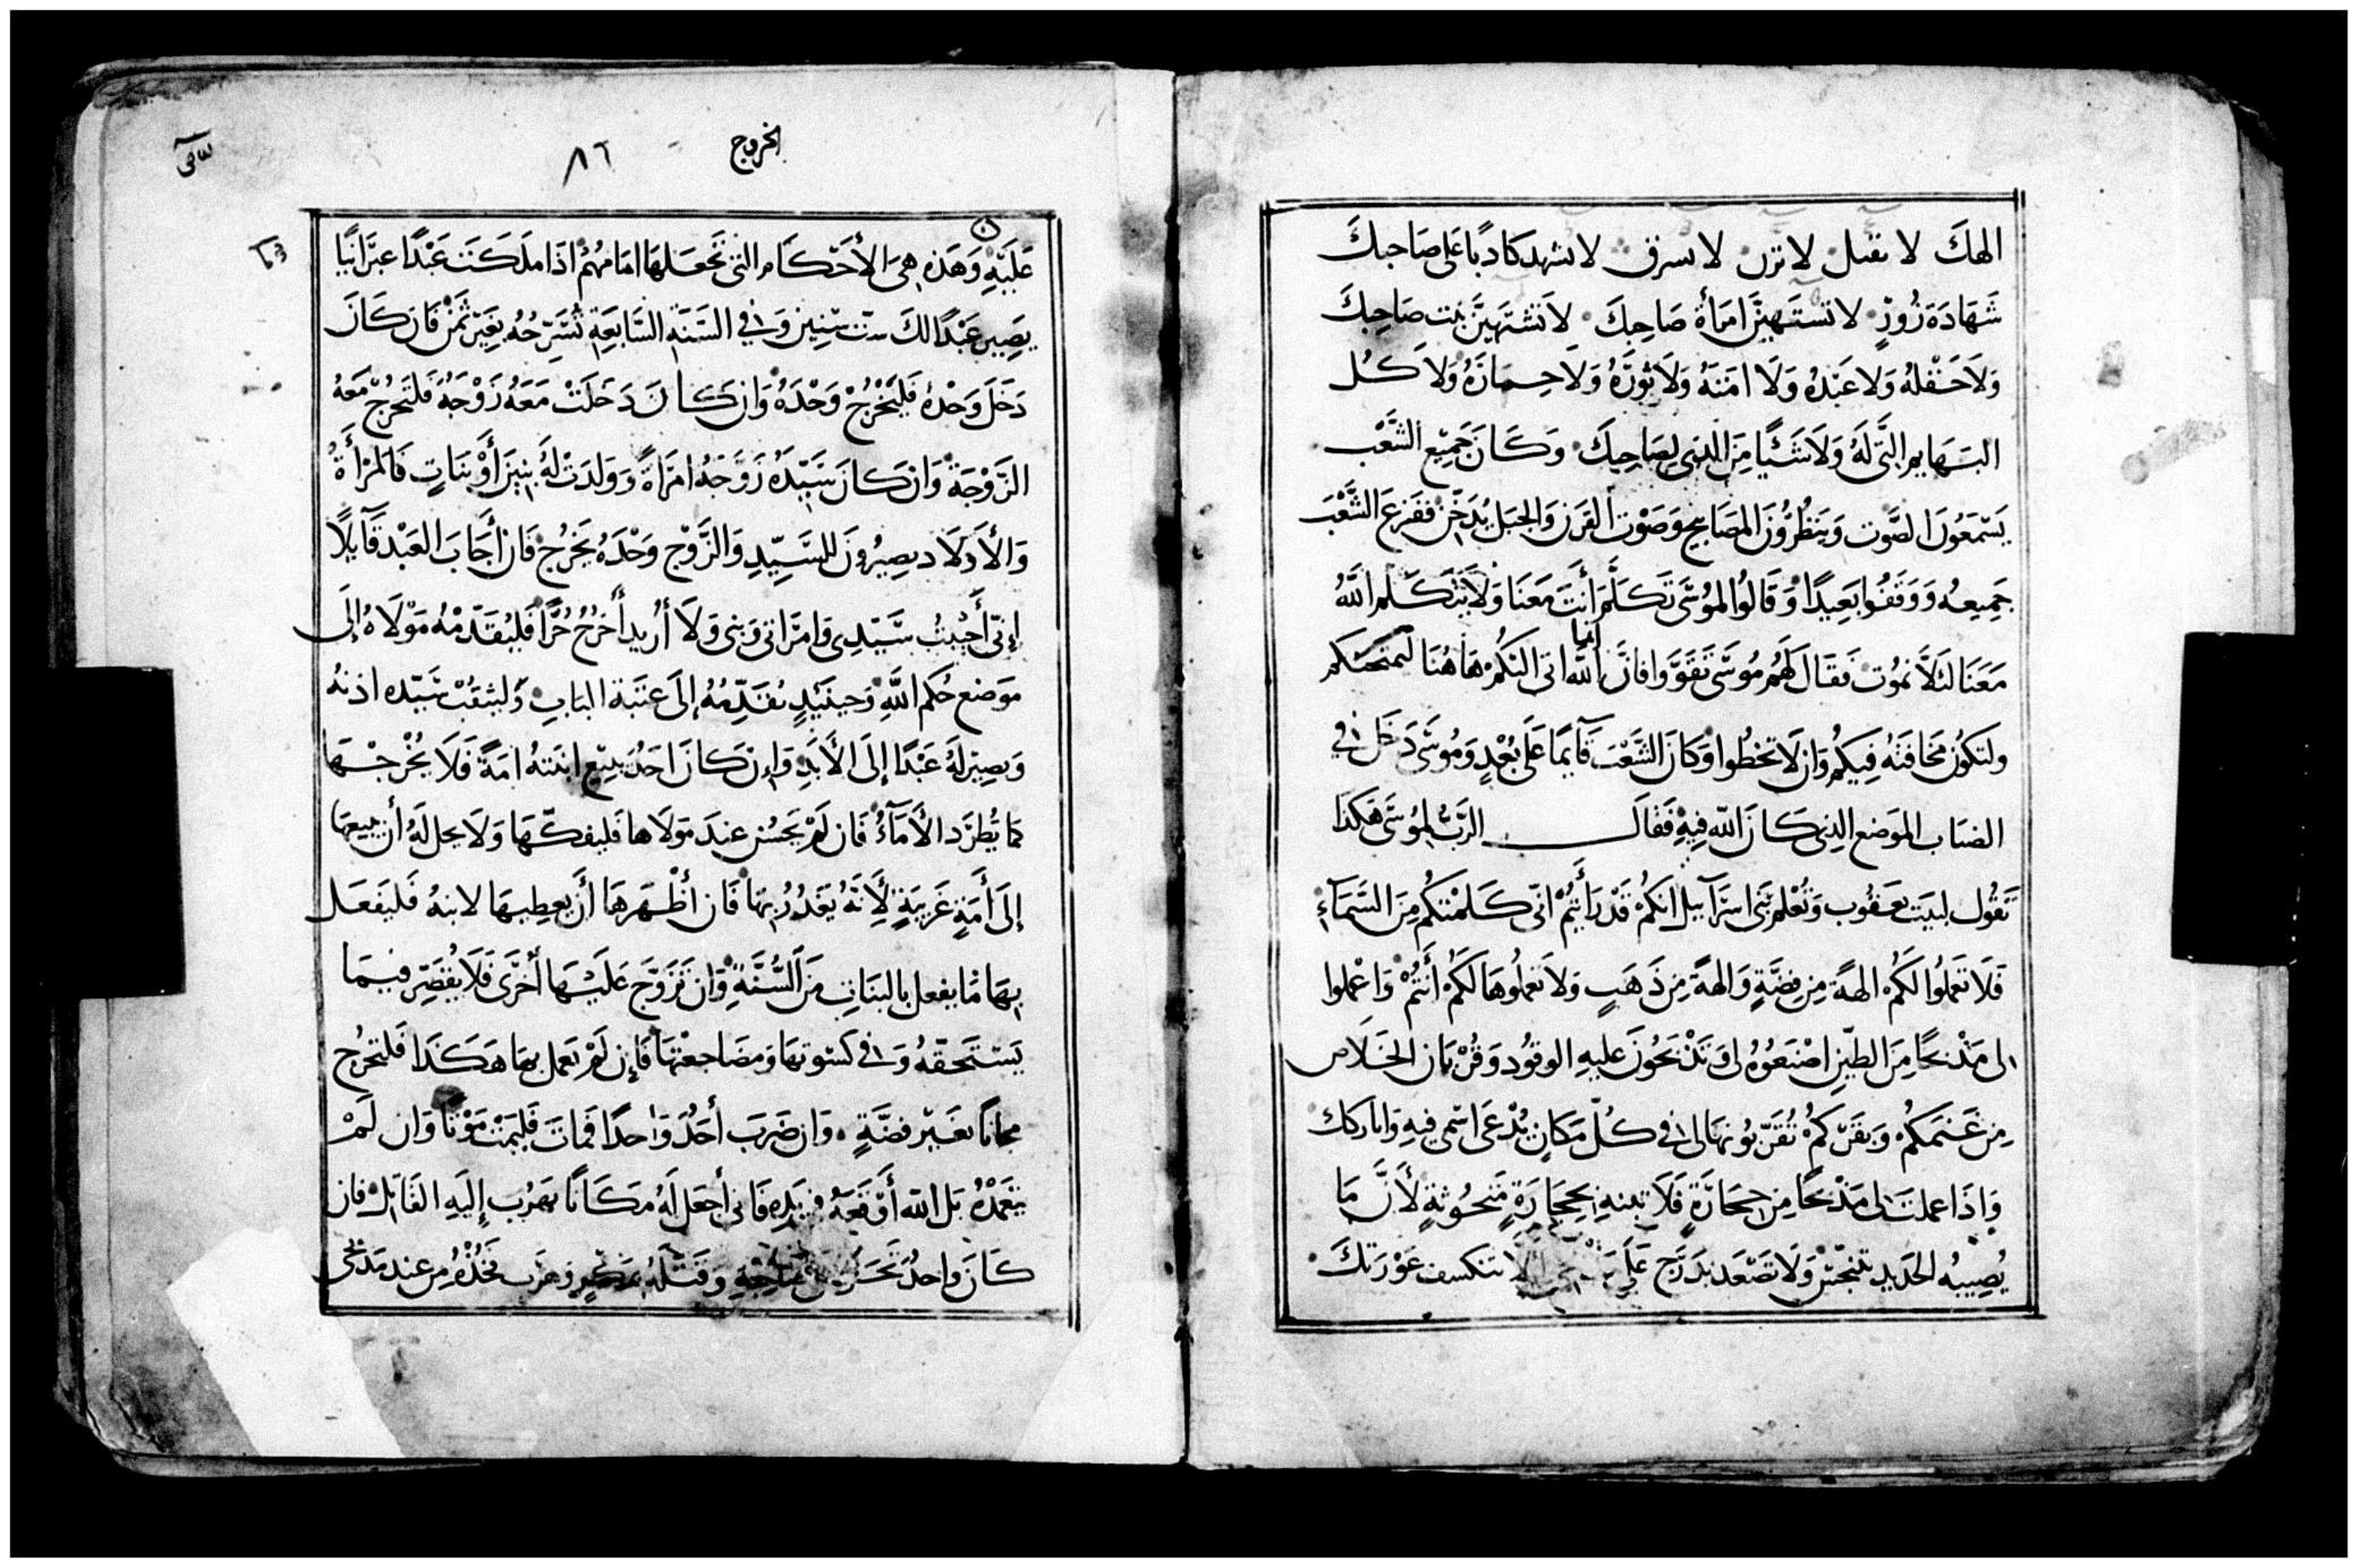 الهكَ لا تقتل لا تزن لا تسرق لا تشهد كادبًا على صَاحبكَ
شَهَادَةَ زُورٍ لا تشتَهِيَنَّ امرَأةَ صَاحِبكَ لَا تَشْتَهِيَنَّ بَيْت صَاحِبكَ
وَلَا حَقْلهُ وَلا عَبْدهُ وَلَا امَتَهُ وَلَا ثَورَهُ وَلَا حِمَارَهُ وَلا كُل
البَهَايمِ التَّي لَهُ وَلَا شَئْيًا مِنَ الدي لِصَاحِبكَ وَكَانَ جَمِيع الشَّعْب
يَسْمَعُونَ الصَّوت وَيَنظُرُونَ المصَابيح وَصَوْت القَرن وَالجبَل يُدَخّن ففَزعَ الشَّعْبَ
جَمِيعهُ وَوَقَفُوا بَعِيدًا وَقَالُوا لموُسَى تَكلَّم أَنتَ مَعَنَا وَلَا يَتَكَلم اللَّهُ
مَعَنَا لئَلَّا نمُوت فَقَالَ لَهُم مُوسَى تَقَوَّوا فانَّ اللَّه انما اتى اليَكُمْ هَاهُنَا ليمتحنكم
ولتكُون مَخَافَتهُ فِيَكُم وَان لَا تخطُوا وَكَانَ الشَّعْبَ قَآيمًا عَلى بُعْدٍ وَمُوسَى دَخَل في
الضبَاب الموَضع الذِي كَانَ اللّه فِيهِ فَقَالَ الرَّبُّ لموُسَى هَكَذَا
تَقُول لبيَت يَعقُوب وَتُعْلم بَني اسرَآييل انكُمْ قَدْ رَأَيتُمْ انّى كَلمْتكُم مِنَ السَّمَآءِ
فَلَا تَعمَلُوا لَكُم الهةً مِن فِضَّةٍ وَالهةً مِن ذَهَبٍ وَلَا تعملُوهَا لَكُمْ أَنتُمْ وَاعْملوا
لى مَذْبحًا مِنَ الطّينِ اصْنَعُوهُ لى وَتذْبَحُونَ عليهِ الوقُود وَقُرْبَان الخَلَاص
مِن غَنَمكُم وَبَقَركُمْ تُقَرّبُونهَا لى في كُلّ مَكَانٍ يُدْعَى اسْمي فيهِ وَاباركك
وَاذَا عملتَ لى مَذْبحًا مِن حِجَارَةٍ فَلَا تبنهِ بحِجَارَةٍ مَنحُوتةٍ لأَنَّ مَا
يُصِيبهُ الحَديد تنجّسْ وَلَا تصْعَد بدَرَج عَلَى لَا تنكشف عَوْرَتكَ
الخروج
٨٦
عَلَيْهِ وَهَذه هِيَ الأَحْكَام التي تجعَلهَا امَامهُمْ اذَا ملَكتَ عَبْدًا عبرَانيًا
يصِير عَبْدًا لكَ ستّ سنِين وَفي السَنَة السَّابعَةِ تُسَرّحُهُ بغَيْر ثمَنْ فَان كَانَ
دَخَل وَحْدهُ فَليَخْرُجْ وَحْدَهُ وَان كانَ دَخَلتْ مَعَهُ زَوْجَةٌ فَلتخرُج مَعهُ
الزَّوْجَة وَان كَانَ سَيّدَهُ زَوَّجَهُ امرَاةً وَوَلدَتْ لهُ بنِينَ أَوْ بَنَاتٍ فَالمَرْأَةُ
وَالأَوَلَاد يصِيرُونَ للسَّيِّدِ وَالزَّوْج وَحْدَهُ يَخرُجُ فَان أَجَابَ العَبْد قَآيلًا
إني أَحْبَبتُ سَيّدِى وَامرَاتي وَبني وَلَا أُريد أَخرُجُ حُرًّا فَليُقَدّمْهُ مَوْلَاهُ إلَى
موَضع حُكم اللَّهِ وَحينَيْدٍ يُقَدِّمهُ إلَى عَتَبَة البَابِ وَليثقُبْ سَيّده اذنهُ
وَيصيرْ لهُ عَبْدًا إلَى الأَبَدِ وَإن كَانَ احَدٌ يبيع ابنتهُ امَةً فَلَا يُخْرجْهَا
كمَا تُطرَد الأَمَآءُ فَان لَمْ يَحسُن عندَ مَولَاها فَليفكّهَا وَلَا يحل لَهُ أَن يبيعهَا
إلَى أُمَةٍ غَريبَةٍ لأَنَّهُ يَغدُرُ بهَا فَان أَظْهَرهَا أَن يعطِيهَا لابنهُ فَليَفعَل
بهَا مَا يفعل بالبَنَات مِنَ السُّنَّةِ وَان تَزَوَّجَ عَلَيْهَا أُخرَى فَلَا يُقصِّر فيمَا
يَستَحَقّهُ وَفي كسْوتهَا وَمضَاجعْتهَا فَإن لَمْ يَعمل بهَا هَكَذَا فَلتخرُج
مجانًا بغَيْر فضَّةٍ وَان ضَرَبَ أَحَدٌ وَاحدًا فمَاتَ فَليَمُتْ مَوْتًا وَان لَمْ
يتَعَمدْهُ بَل اللّه أَوقَعَهُ في يَدِهِ فَاني أَجعَل لَهُ مَكَانًا يَهرُب إِلَيهِ القَاتِلُ فان
كَانَ وَاحدٌ وَقَتَلَهُ وهرَب فخُذْهُ مِن عند مَذبحى